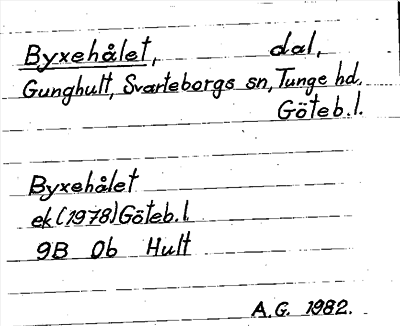 Byxehålet, dal,
Gunghult, Svarteborgs sn, Tunge hd.
Göteb.l.
Byxehålet
ek (1978) Göteb.l
9B 0b Hult
A.G. 1982.